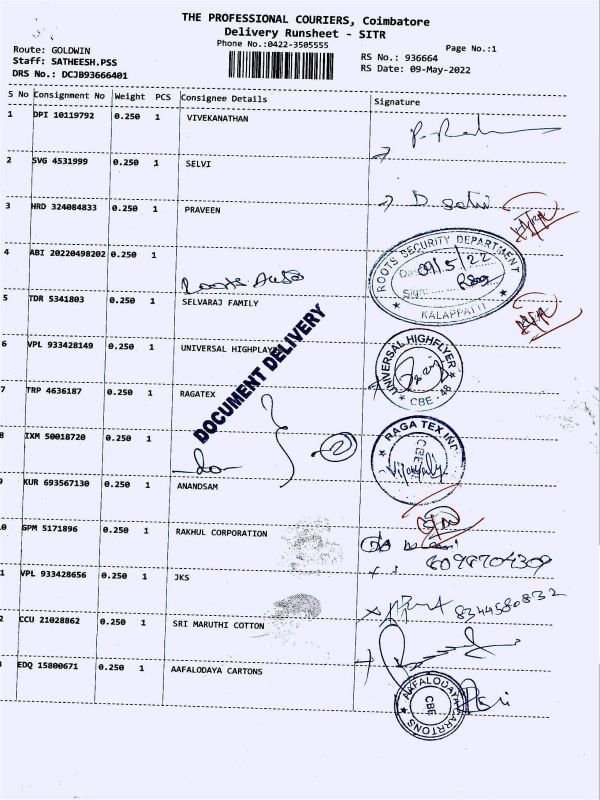 THE PROFESSIONAL COURIERS, Coimbatore
Delivery Runsheet - SITR
Phone No.:0422-3505555
Page No.:1
Route: GOLDWIN
RS No.: 936664
Staff: SATHEESH.PSS
RS Date: 09-May-2022
DRS No.: DCJB93666401
S No Consignment No Weight PCS Consignee Details Signature
1 DPI 10119792 0.250 1 VIVEKANATHAN
2 SVG 4531999 0.250 1 SELVI
3 HRD 324084833 0.250 1 PRAVEEN
4 ABI 20220498202 0.250 1 Roots Auto
ROOTS SECURITY DEPARTMENT
09/5/22
Sign:
KALAPPATTI
5 TDR 5341803 0.250 1 SELVARAJ FAMILY
6 VPL 933428149 0.250 1 UNIVERSAL HIGHPLAY
UNIVERSAL HIGHFLYER
CBE - 48
DOCUMENT DELIVERY
7 TRP 4636187 0.250 1 RAGATEX
RAGA TEX IND
CBE
8 IXM 50018720 0.250 1 do
9 KUR 693567130 0.250 1 ANANDSAM
0 GPM 5171896 0.250 1 RAKHUL CORPORATION
8098704309
1 VPL 933428656 0.250 1 JKS
8344580832
2 CCU 21028862 0.250 1 SRI MARUTHI COTTON
EDQ 15800671 0.250 1 AAFALODAYA CARTONS
AAFALODAYA CARRTONS
CBE